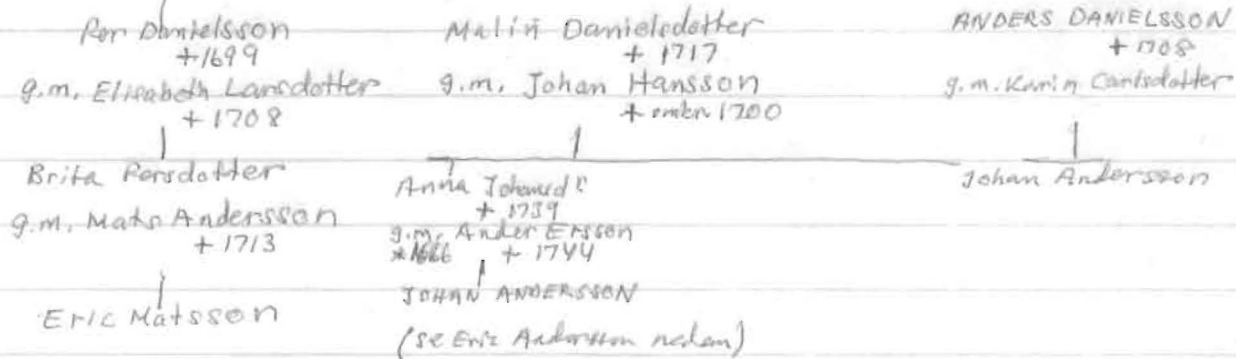 Per Danielsson
+1699
g.m. Elisabeth Larsdotter
+ 1708
Brita Persdotter
g.m. Mats Andersson
+ 1713
Eric Matsson
Malin Danielsdotter
+ 1717
g.m. Johan Hansson
+ omkr 1700
Anna
+ 1739
g.m. Ander Ersson
*1666 + 1744
JOHAN ANDERSSON
(se Eric Andersson nedan)
ANDERS DANIELSSON
+ 1708
g.m. Karin Carlsdotter
Johan Andersson